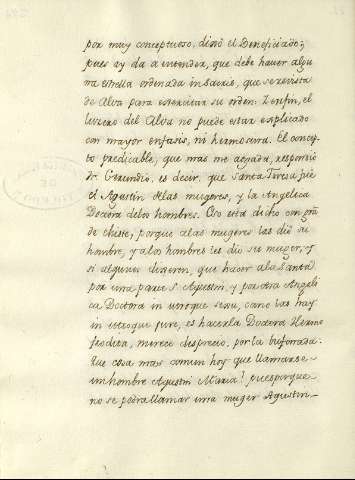 por muy conceptuoso, dixo el Beneficiado;
pues ay da à entender, que debe haver algu
na estrella ordenada in sacris, que se revista
de Alva para exercitar su orden. Y en fin, el
luzero del Alva no puede estar explicado
con mayor enfasis, ni hermosura. El concep
to predicable, que más me agrada, respondio
fr. Gerundio, es decir, que Santa Teresa fue
el Agustin de las mugeres, y la Angelica
Doctora de los hombres. Eso está dicho con gra
de chiste, porque a las mugeres les dió su
hombre, y a los hombres les dió su muger, y
si algunos dixeren, que hacer a la Santa
por una parte Sn. Agustin, y por otra Angeli
ca Doctora in utroque sexu, como las hay
in utroque jure, es hacerla Doctora Herma
frodita, merece desprecio por la bufonada.
Que cosa mas comun hoy que llamarse
un hombre Agustin Maria? pues porque
no se podrá llamar una muger Agustin